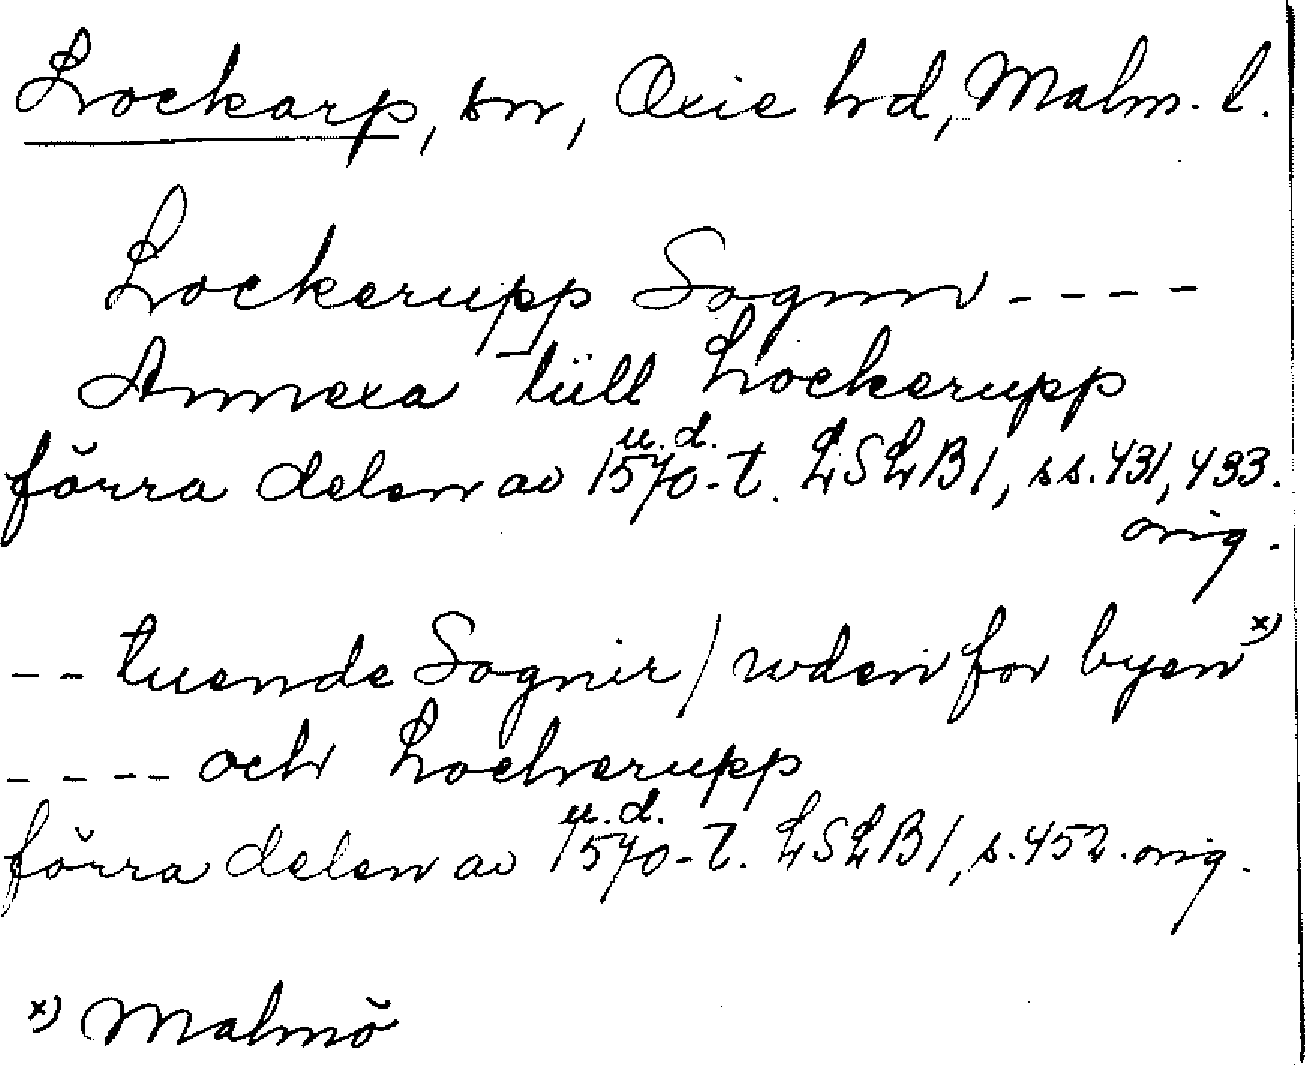 Lockarp, sn, Oxie hd, Malm. l.
Lockerupp Sognn ----
Annexa tüll Lockerupp
u. d.
förra delen av 1570-t. LSLB1, ss. 431, 433.
orig.
-- tuende Sognir / uden for byen x)
---- och Locherupp
u. d.
förra delen av 1570-t. LSLB1, s. 452. orig.
x) Malmö